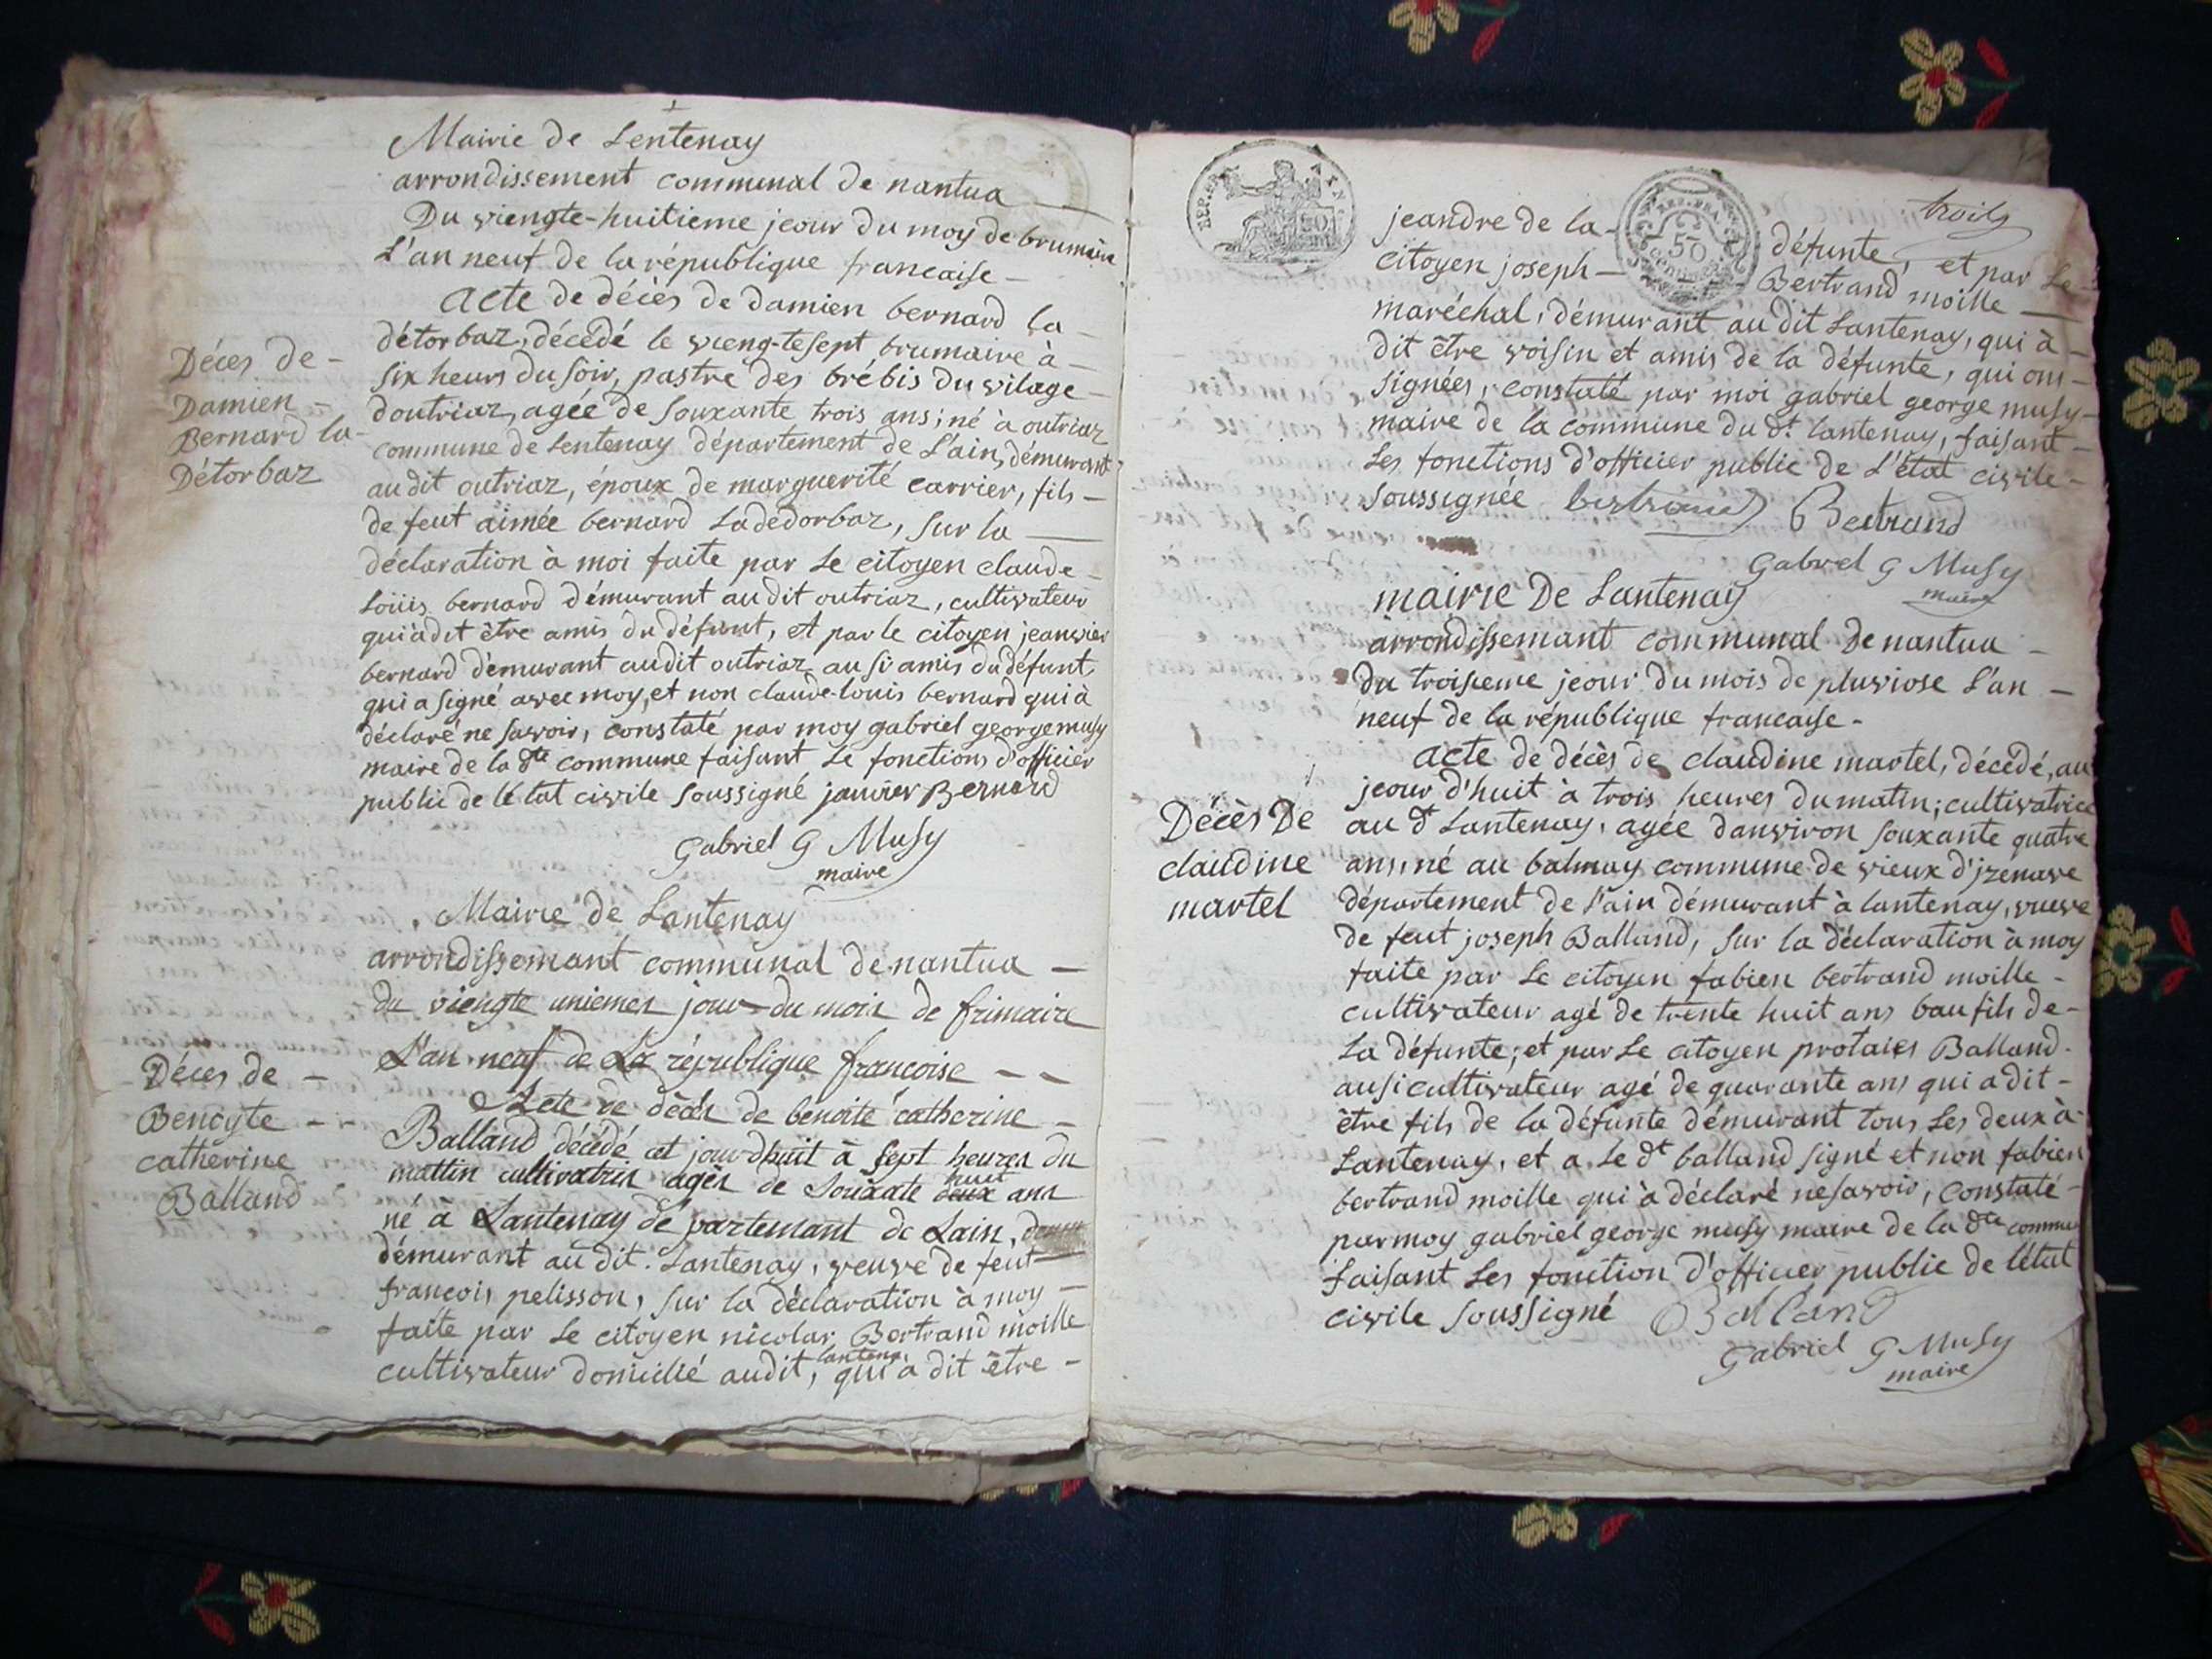 Mairie de Lentenay
arrondissement communal de nantua
Du viengte-huitieme jeour du moy de brumaire
L'an neuf de la république francaise
acte de décès de damien bernard la
détorbaz, décédé le vieng-tesept brumaire à
six heurs du soir, pastre des brébis du vilage
doutriaz, agée de souxante trois ans; né à outriaz
commune de Lentenay département de L'ain, démurant
au dit outriaz, époux de marguerité carrier, fils
de feut aimée bernard Ladedorbaz, sur la
déclaration à moi faite par le citoyen claude
Loüis bernard démurant au dit outriaz, cultivateur
qui à dit être amis du défunt, et par le citoyen jeanvier
bernard démurant audit outriaz ausi amis du défunt,
qui a signé avec moy, et non claude-louis bernard qui à
déclaré ne savoir, constaté par moy gabriel george musy
maire de la dte commune faisant le fonctions d'officier
public de létat civile soussigné janvier Bernard
Gabriel G Musy
maire
Déces de
Damien
Bernard la
Détorbaz
Mairie de Lantenay
arrondissemant communal de nantua
du viengte uniemes jour du mois de frimaire
L'an neuf de La république francoise
Acte de décès de benoite catherine
Balland décédé cet jourdhuit à sept heures du
mattin cultivatris agès de soixante huit deux ans
né à Lantenay département de Lain,
démurant au dit Lantenay, veuve de feut
francois pelisson, sur la déclaration à moy
faite par le citoyen nicolas Bertrand moille
cultivateur domicilié audit, lantena. qui à dit être
Déces de
Benoyte
catherine
Balland
troils
jeandre de la défunte, et par Le
citoyen joseph Bertrand moille
maréchal, démurant au dit Lantenay, qui à
dit être voisin et amis de la défunte, qui ons
signées, constaté par moi gabriel george musy
maire de la commune du dt. lantenay, faisant
Les fonctions d'officier public de L'état civile
soussignée bertrand Bertrand
Gabriel G Musy
maire
REP. FRA
50
REP. FRA
50
CENTIMES
mairie De Lantenay
arrondissemant communal De nantua
du troisieme jeour du mois de pluviose L'an
neuf de la république francaise.
acte de décès de claudine martel, décédé, au
jeour d'huit à trois heures du matin; cultivatrice
au dt Lantenay, agée danviron souxante quatre
ans, né au balmay commune de vieux d'jzenave
département de l'ain démurant à lantenay, vueve
de feut joseph Balland, sur la déclaration à moy
faite par Le citoyen fabien bertrand moille
cultivateur agé de trente huit ans baufils de
La défunte; et par Le citoyen protaies Balland
ausi cultivateur agé de quarante ans qui a dit
être fils de la défunte démurant tous Les deux à
Lantenay, et a Le dt balland signé et non fabien
bertrand moille qui à déclaré ne savoir, constaté
par moy gabriel george musy maire de la dte commu
faisant Les fonction d'officier public de létat
civile soussigné Balland
Gabriel G Musy
maire
Décès De
claudine
martel